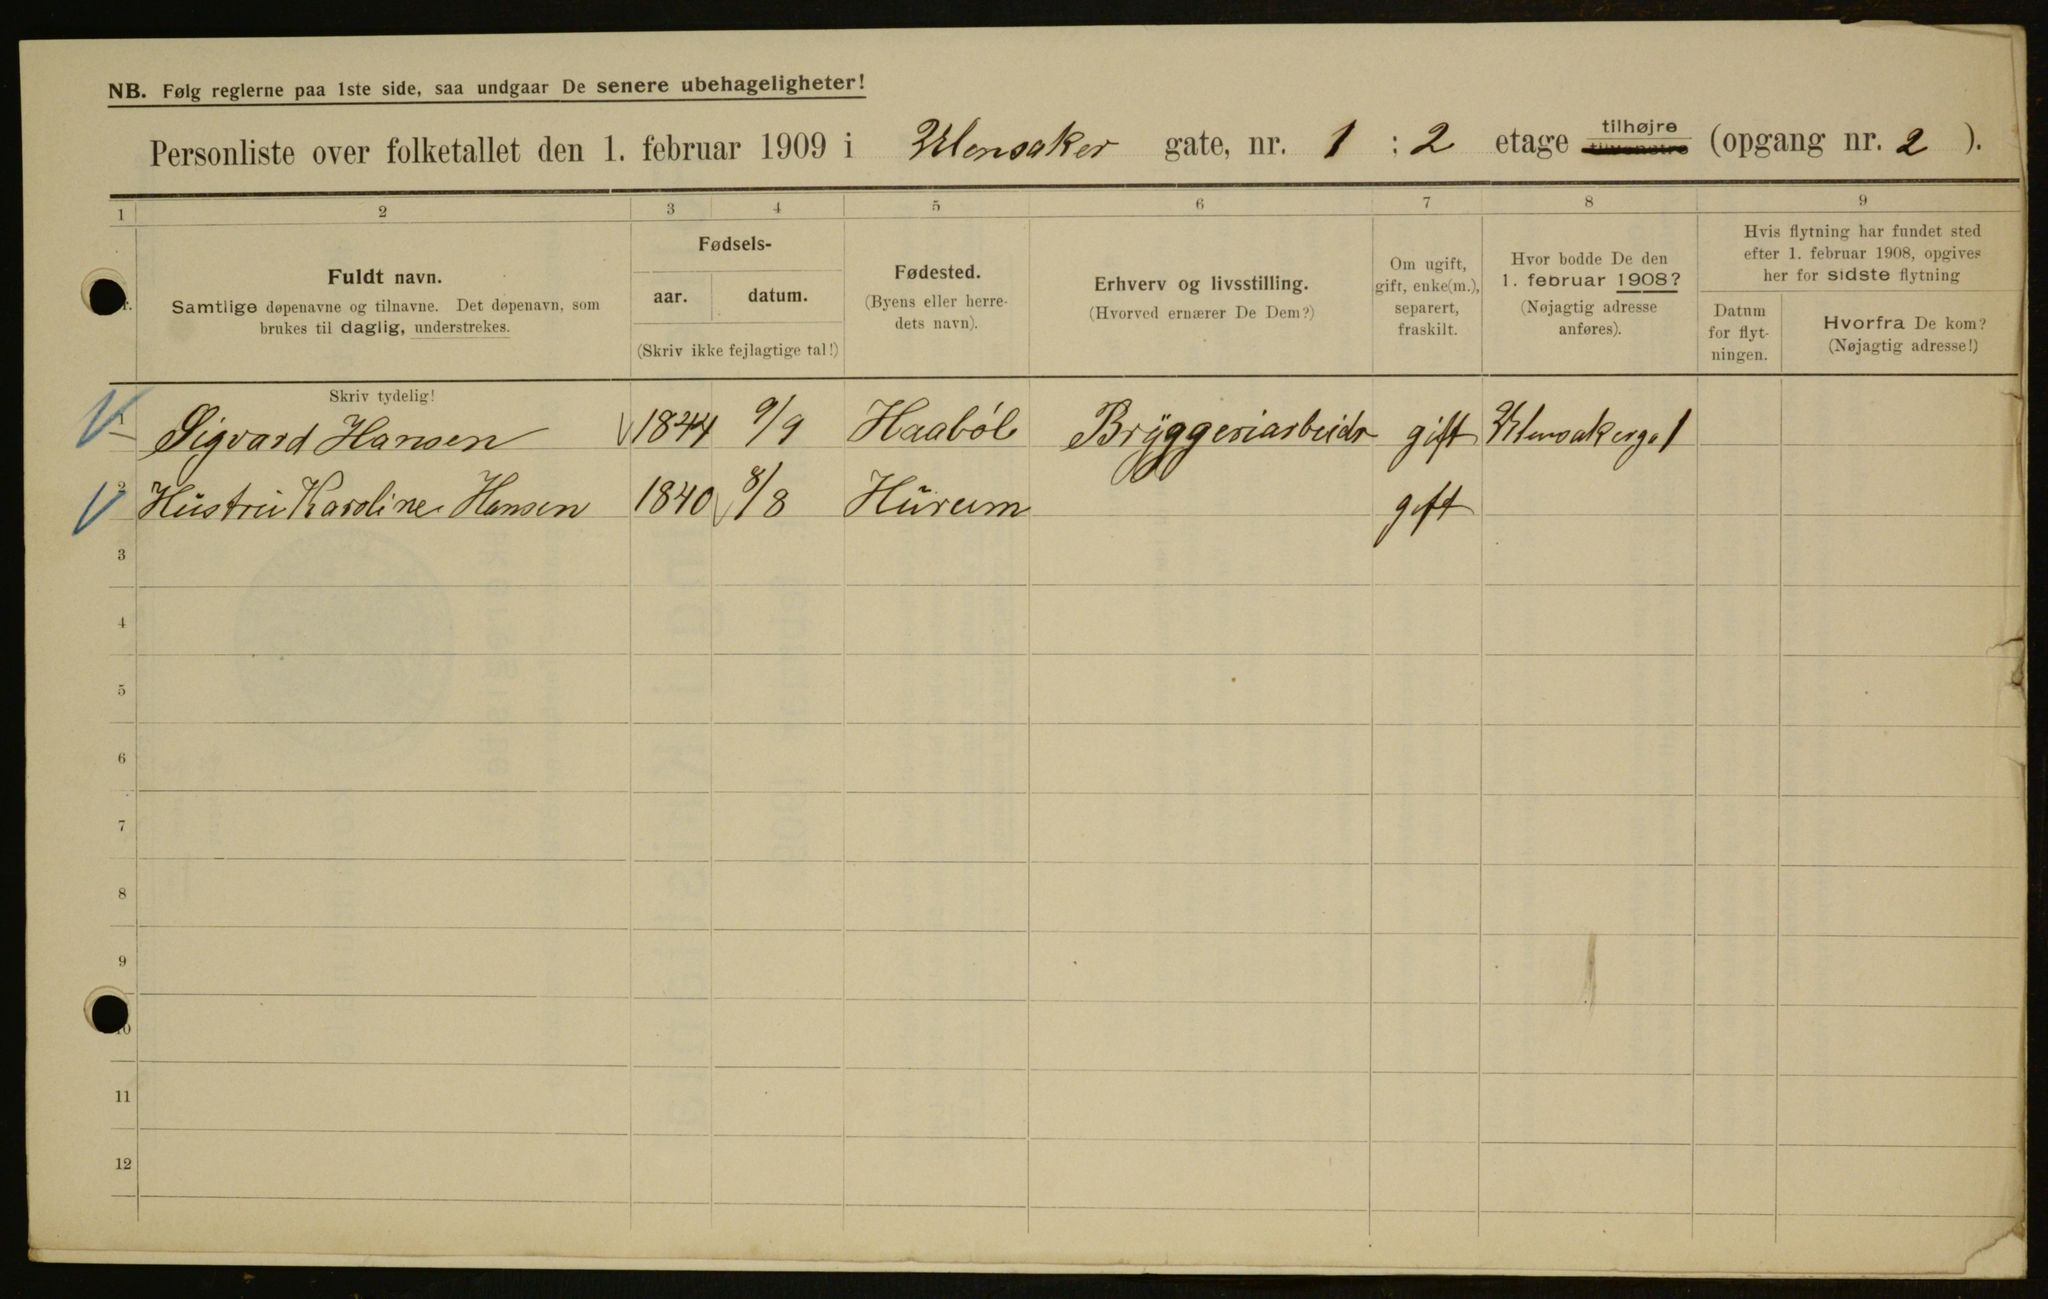 NB. Følg reglerne paa 1ste side, saa undgaar De senere ubehageligheter!
Personliste over folketallet den 1. februar 1909 i Ulensaker gate, nr. 1 : 2 etage tilhøjre tilvenstre (opgang nr. 2 ).
1 2 3 4 5 6 7 8 9
Fuldt navn.
Samtlige døpenavne og tilnavne. Det døpenavn, som
brukes til daglig, understrekes.
Fødsels-
aar. datum.
(Skriv ikke fejlagtige tal!)
Fødested.
(Byens eller herre-
dets navn).
Erhverv og livsstilling.
(Hvorved ernærer De Dem?)
Om ugift,
gift, enke(m.),
separert,
fraskilt.
Hvor bodde De den
1. februar 1908?
(Nøjagtig adresse
anføres).
Hvis flytning har fundet sted
efter 1. februar 1908, opgives
her for sidste flytning
Datum
for flyt-
ningen.
Hvorfra De kom?
(Nøjagtig adresse!)
Skriv tydelig!
1 Sigvard Hansen 1844 9/9 Haaböl Bryggeriarbeidr gift Ulensakerg. 1
2 Hustru Karoline Hansen 1840 8/8 Hurum gift
3
4
5
6
7
8
9
10
11
12